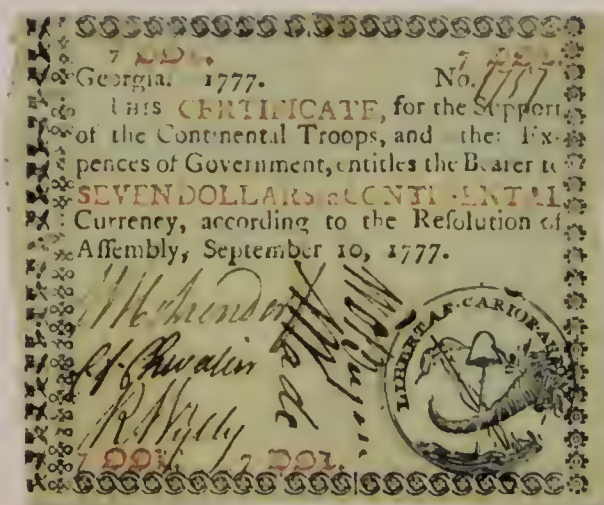 7 DOL. 7 DOL.
Georgia. 1777. No. 1757
THIS CERTIFICATE, for the Support
of the Continental Troops, and other Ex-
pences of Government, entitles the Bearer to
SEVEN DOLLARS in CONTINENTAL
Currency, according to the Resolution of
Assembly, September 10, 1777.
R Wylly
LIBERTAS CARIOR AURO
7 DOL. 7 DOL.